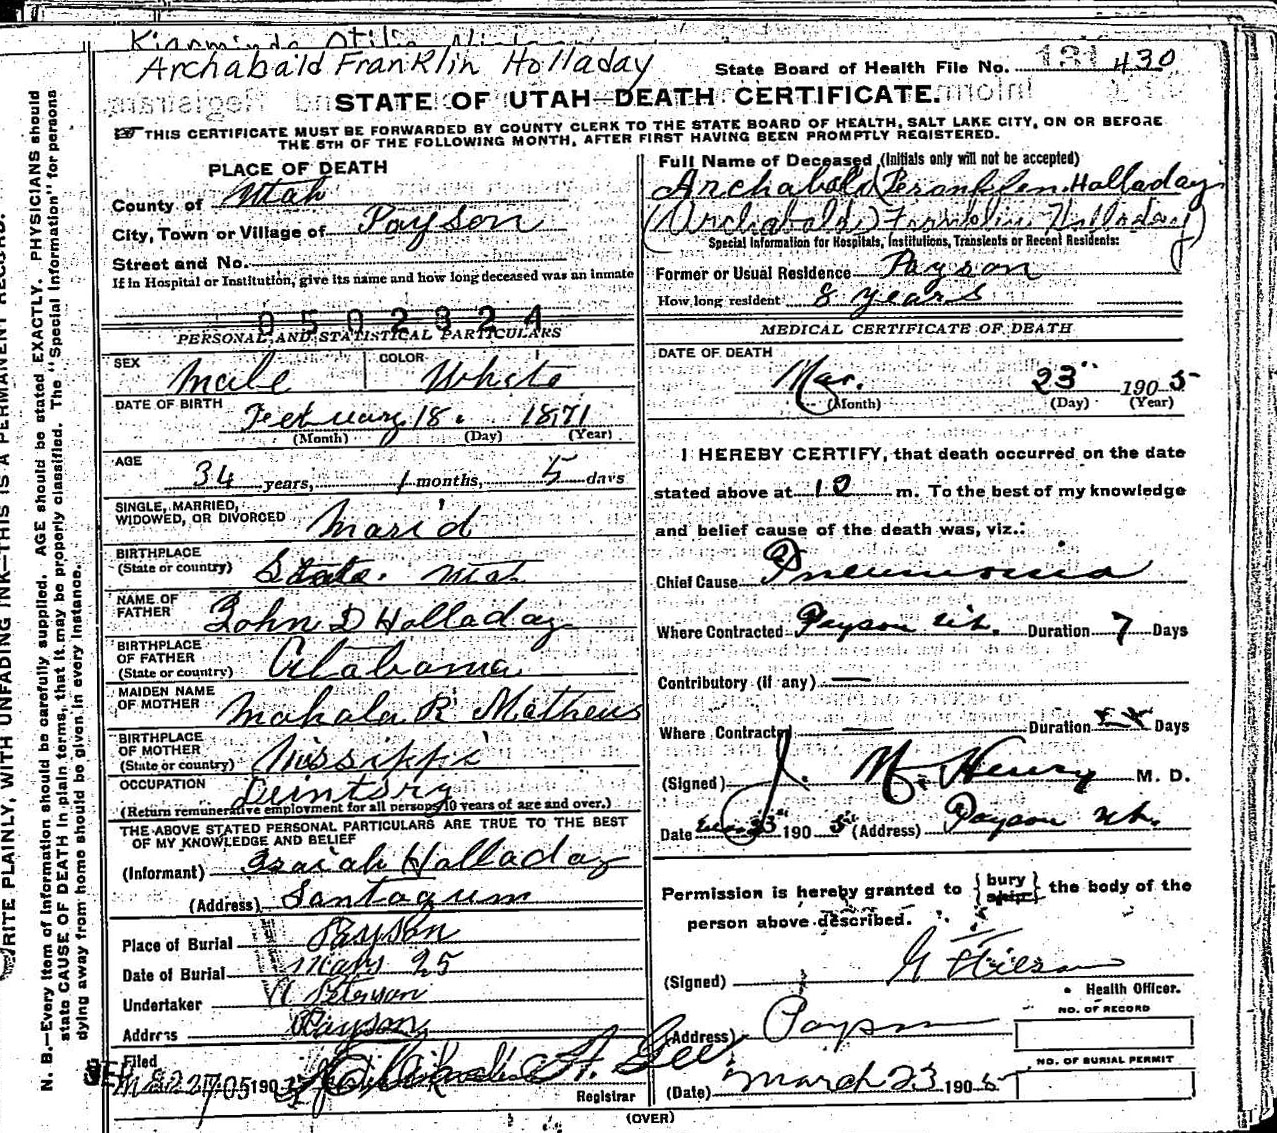 Archabald Franklin Holladay
State Board of Health File No. 430
STATE OF UTAH—DEATH CERTIFICATE.
THIS CERTIFICATE MUST BE FORWARDED BY COUNTY CLERK TO THE STATE BOARD OF HEALTH, SALT LAKE CITY, ON OR BEFORE
THE 5TH OF THE FOLLOWING MONTH, AFTER FIRST HAVING BEEN PROMPTLY REGISTERED.
PLACE OF DEATH
County of Utah
City, Town or Village of Payson
Street and No.
If in Hospital or Institution, give its name and how long deceased was an inmate
0502324
PERSONAL AND STATISTICAL PARTICULARS
SEX Male COLOR White
DATE OF BIRTH February 18. 1871
(Month) (Day) (Year)
AGE 34 years, 1 months, 5 days
SINGLE, MARRIED,
WIDOWED, OR DIVORCED Mari'd
BIRTHPLACE
(State or country) State. Utah
NAME OF
FATHER John D Holladay
BIRTHPLACE
OF FATHER
(State or country) Alabama
MAIDEN NAME
OF MOTHER Mahala R Matheus
BIRTHPLACE
OF MOTHER
(State or country) Missippi
OCCUPATION
(Return remunerative employment for all persons 10 years of age and over.)
THE ABOVE STATED PERSONAL PARTICULARS ARE TRUE TO THE BEST
OF MY KNOWLEDGE AND BELIEF
(Informant) Isaiah Holladay
(Address) Santaqum
Place of Burial Payson
Date of Burial Mars 25
Undertaker Peterson
Address Payson
Filed 190
Registrar
(OVER)
Full Name of Deceased (Initials only will not be accepted)
Archabald Franklen Holladay
(Archabald) Franklin Holladay)
Special Information for Hospitals, Institutions, Transients or Recent Residents:
Former or Usual Residence Payson
How long resident 8 years
MEDICAL CERTIFICATE OF DEATH
DATE OF DEATH
Mar. 23" 1905
(Month) (Day) (Year)
I HEREBY CERTIFY, that death occurred on the date
stated above at 10 m. To the best of my knowledge
and belief cause of the death was, viz.:
Chief Cause Pneumonia
Where Contracted Payson Ut. Duration 7 Days
Contributory (if any) —
Where Contracted — Duration Days
(Signed) J. M. Henry M. D.
Date 23" 1905 (Address) Payson Ut.
Permission is hereby granted to {bury ship} the body of the
person above described.
(Signed)
Health Officer.
(Address) Payson
NO. OF RECORD
NO. OF BURIAL PERMIT
(Date) March 23 1905
WRITE PLAINLY, WITH UNFADING INK—THIS IS A PERMANENT RECORD.
N. B.—Every item of information should be carefully supplied. AGE should be stated EXACTLY. PHYSICIANS should
state CAUSE OF DEATH in plain terms, that it may be properly classified. The "Special Information" for persons
dying away from home should be given in every instance.